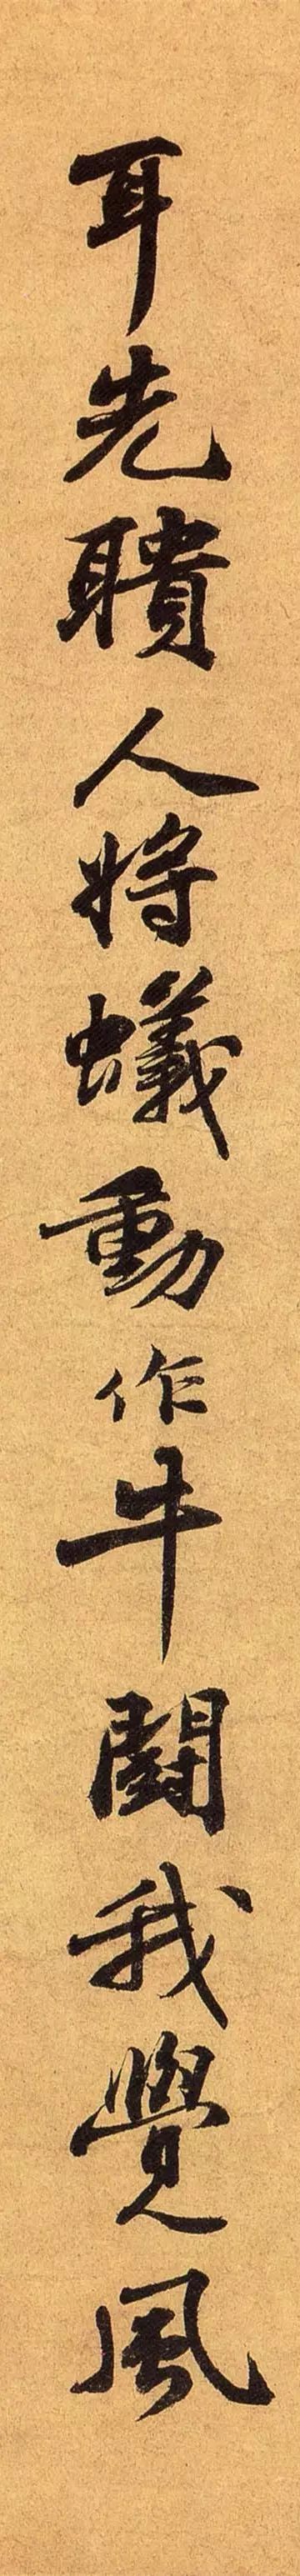 耳先聵人將蟻動作牛鬪我覺風